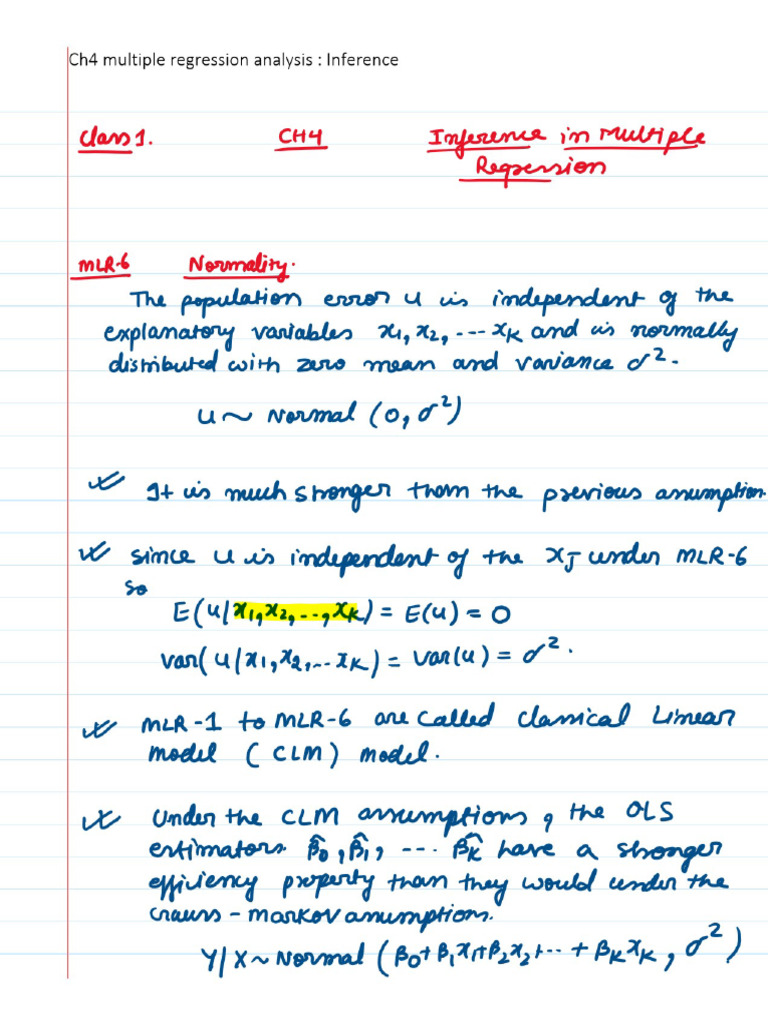 Ch4 multiple regression analysis : Inference
Class 1. CH4 Inference in Multiple
Regression
MLR-6 Normality.
The population error u is independent of the
explanatory variables x₁, x₂, --- xₖ and is normally
distributed with zero mean and variance σ².
u ~ Normal (0, σ²)
It is much stronger than the previous assumption.
Since u is independent of the xⱼ under MLR-6
so
E(u/x₁, x₂, ..., xₖ) = E(u) = 0
var(u/x₁, x₂, ... xₖ) = var(u) = σ².
MLR-1 to MLR-6 are called classical Linear
model (CLM) model.
Under the CLM assumptions, the OLS
estimators β̂₀, β̂₁, --- β̂ₖ have a stronger
efficiency property than they would under the
Gauss-Markov assumptions.
Y/X ~ Normal (β₀+β₁x₁+β₂x₂+--+βₖxₖ, σ²)